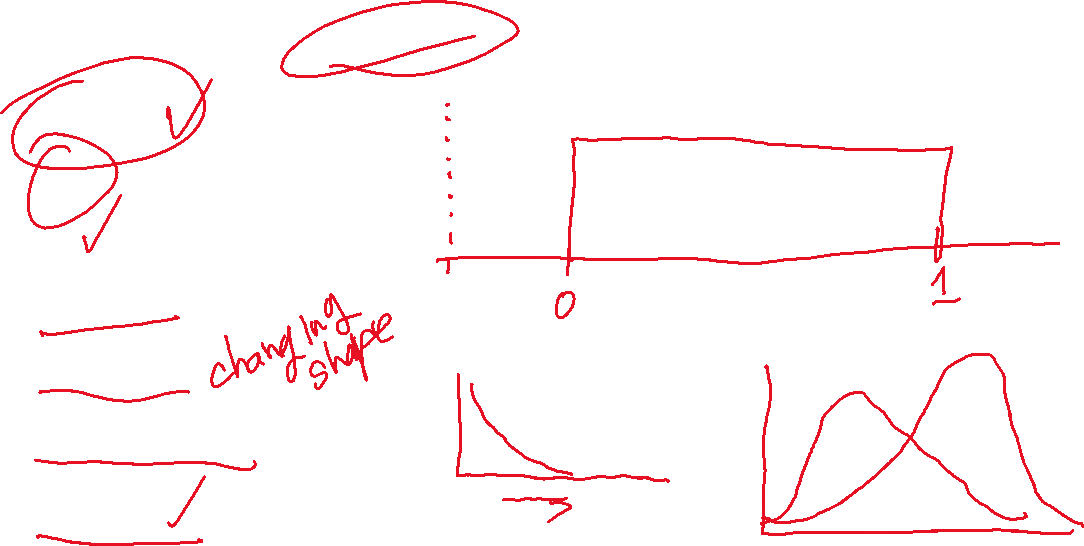 0
1
changing
shape